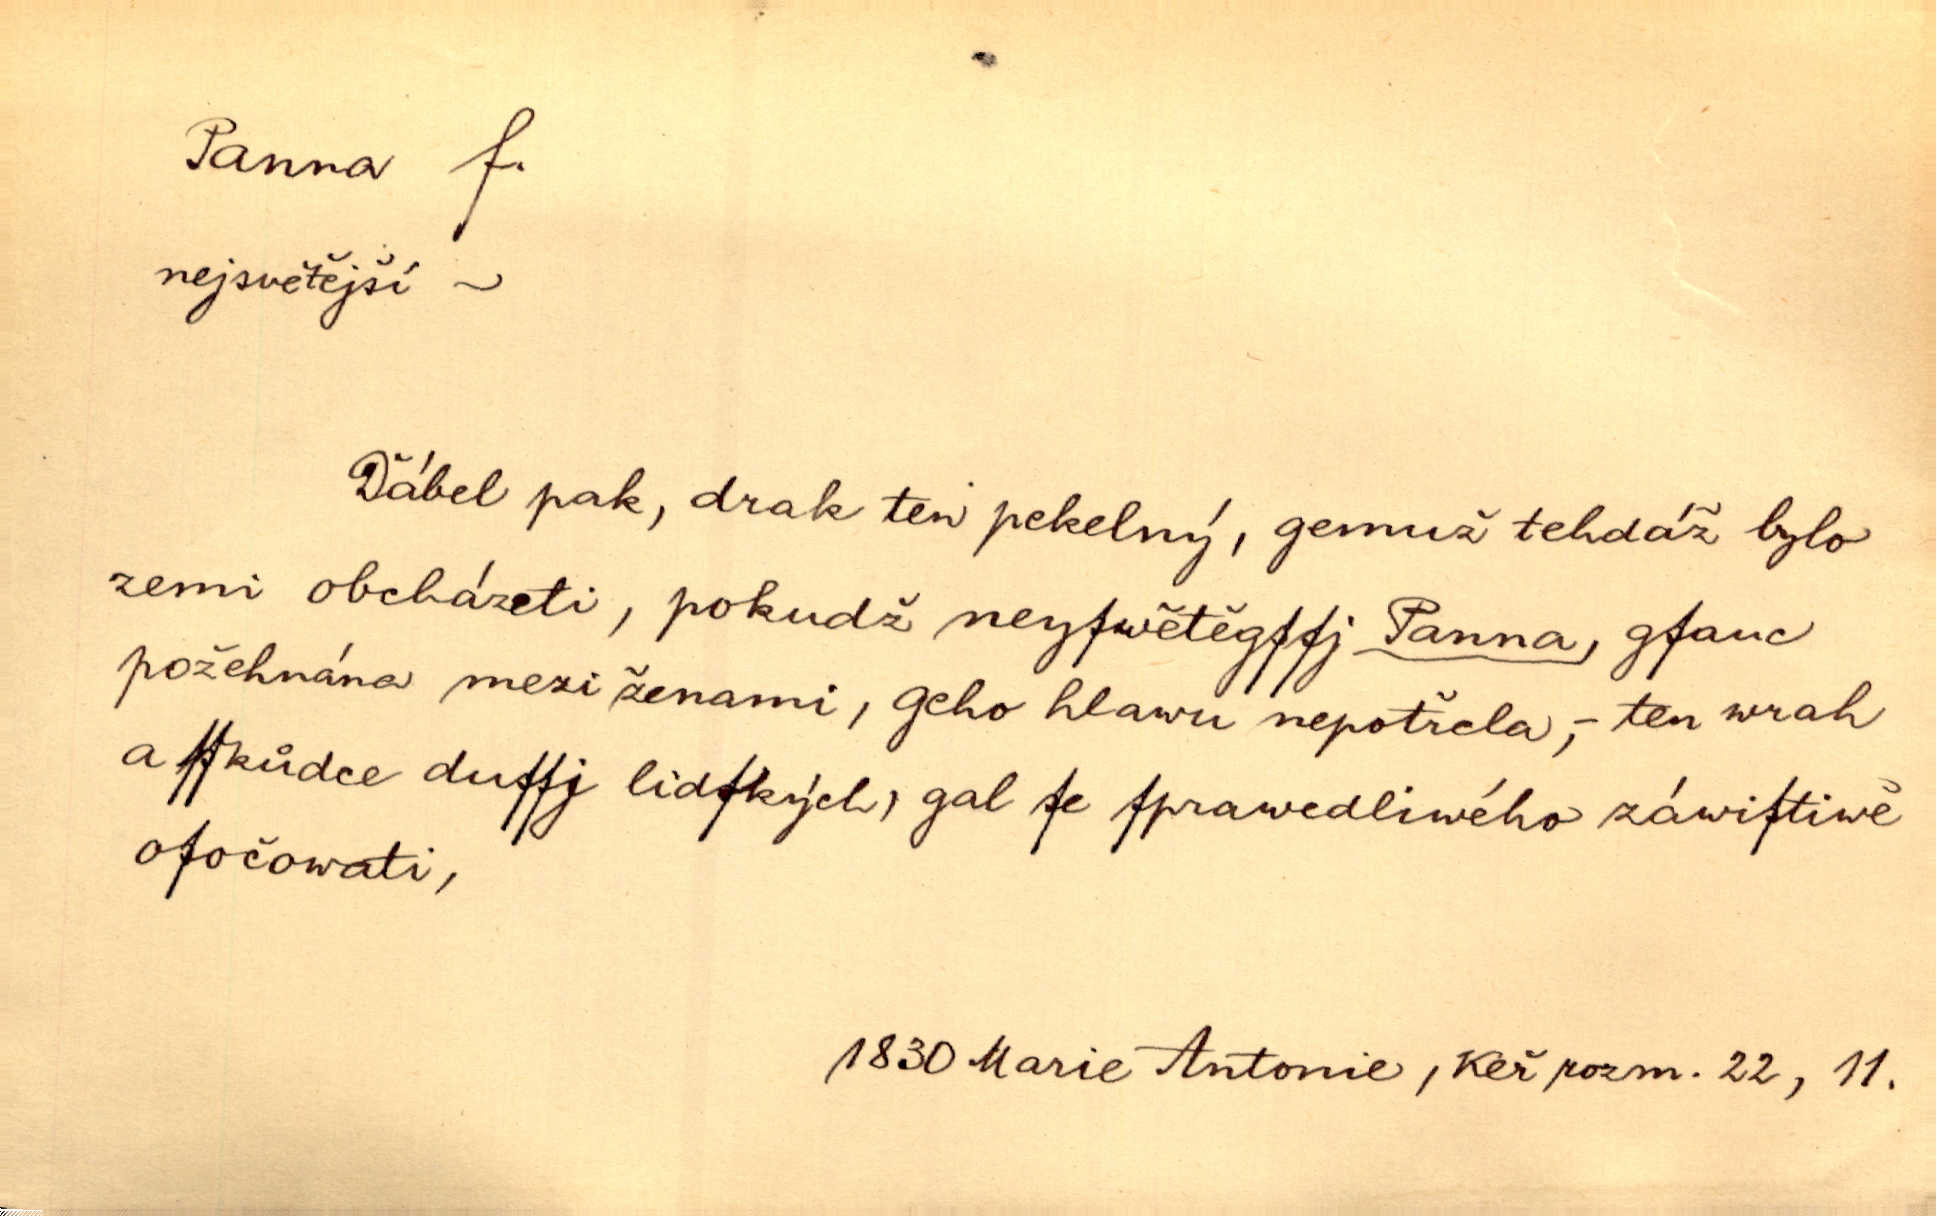 Panna f.
nejsvětější ~
Ďábel pak, drak ten pekelný, gemuž tehdáž bylo
zemi obcházeti, pokudž neyſwětěgſſj Panna, gſauc
požehnána mezi ženami, geho hlawu nepotřela,- ten wrah
a ſſkůdce duſſj lidſkých, gal ſe ſprawedliwého záwiſtiwě
oſočowati,
1830 Marie Antonie, Keř rozm. 22, 11.